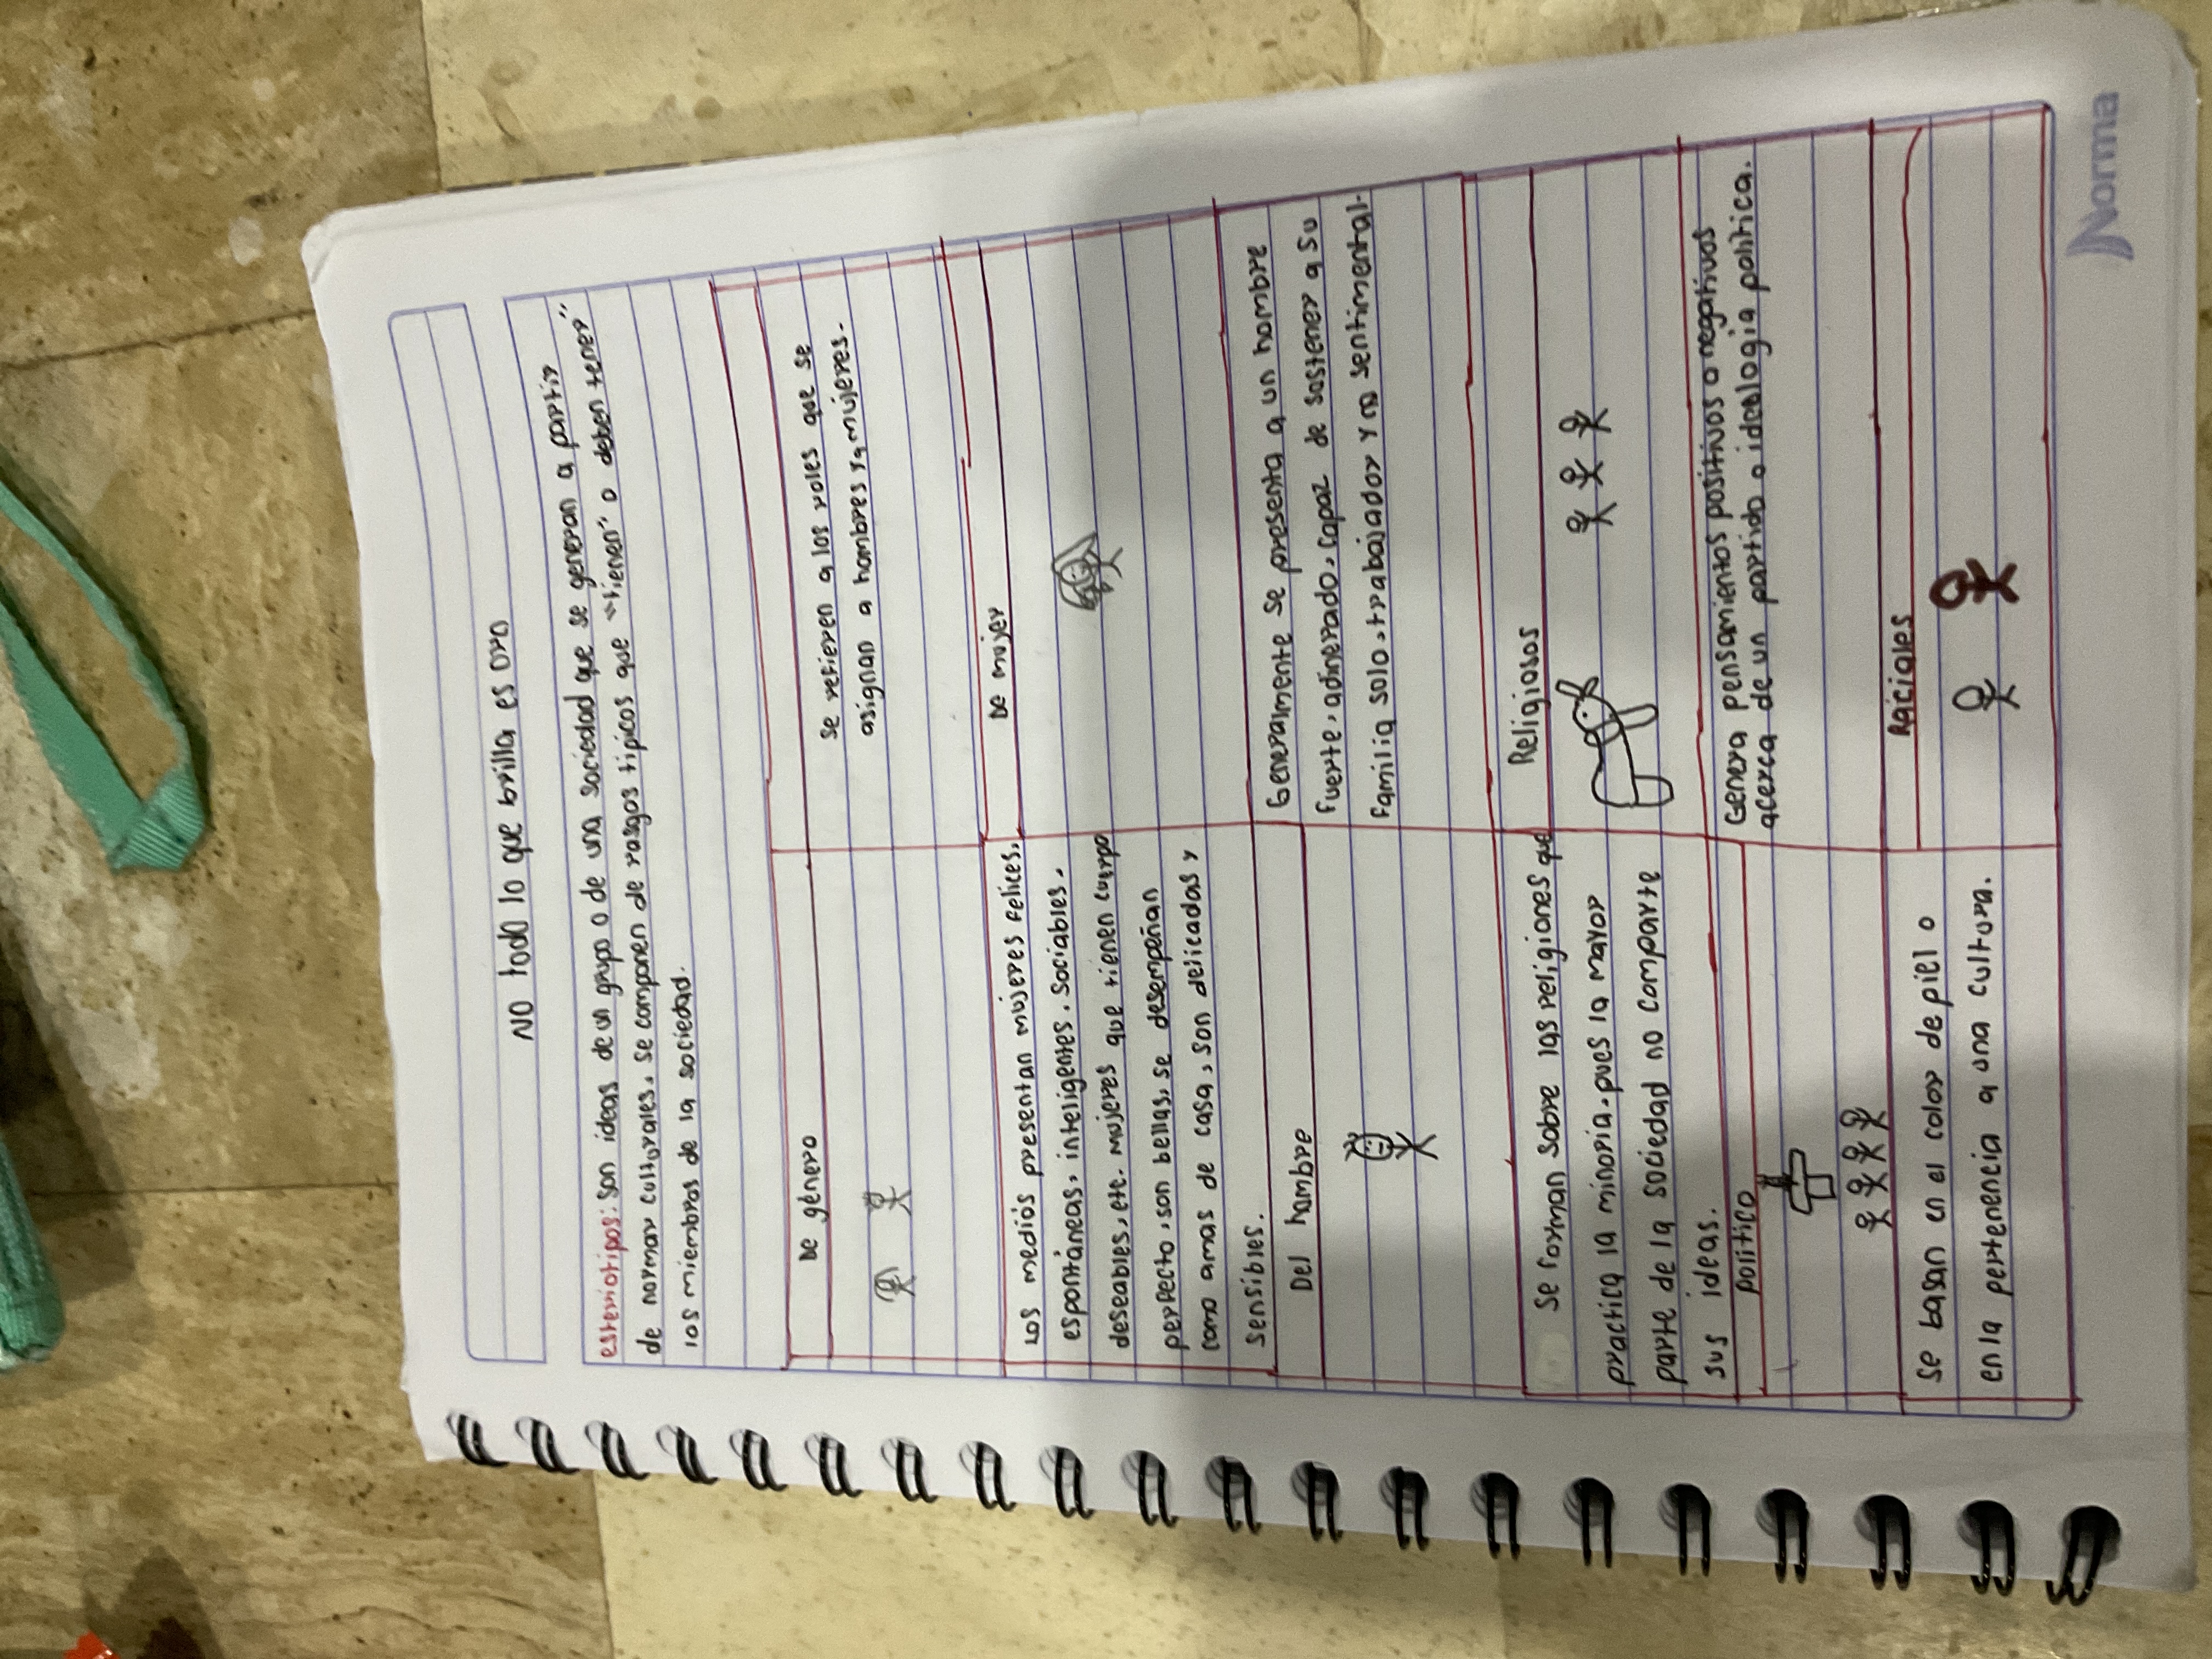 No todo lo que brilla es oro
estereotipos: son ideas de un grupo o de una sociedad que se generan a partir
de normar culturales, se componen de rasgos tipicos que "tienen" o deben tener"
los miembros de la sociedad.
De género
Se refieren a los roles que se
asignan a hombres y a mujeres.
Los medios presentan mujeres felices,
espontáneas, inteligentes, sociables,
deseables, etc. mujeres que tienen cuerpo
perfecto, son bellas, se desempeñan
como amas de casa, son delicadas y
sensibles.
De mujer
Del hombre
Generalmente se presenta a un hombre
fuerte, adinerado, capaz de sostener a su
familia solo, trabajador y no sentimental.
Se forman sobre las religiones que
practica la minoria, pues la mayor
parte de la sociedad no comparte
sus ideas.
Religiosos
politico
Genera pensamientos positivos o negativos
acerca de un partido o ideologia politica.
Se basan en el color de piel o
en la pertenencia a una cultura.
Raciales
Norma